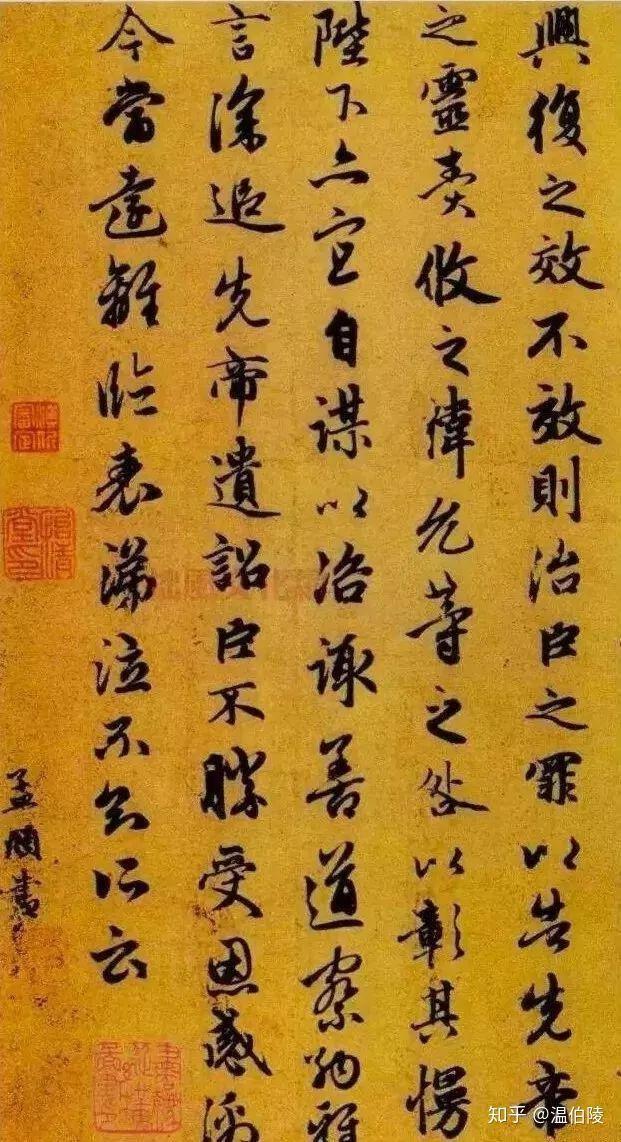 興復之效不效則治臣之罪以告先帝
之靈責攸之禕允等之咎以彰其慢
陛下亦宜自謀以咨諏善道察納雅
言深追先帝遺詔臣不勝受恩感激
今當遠離臨表涕泣不知所云
孟頫書
知乎 @温伯陵